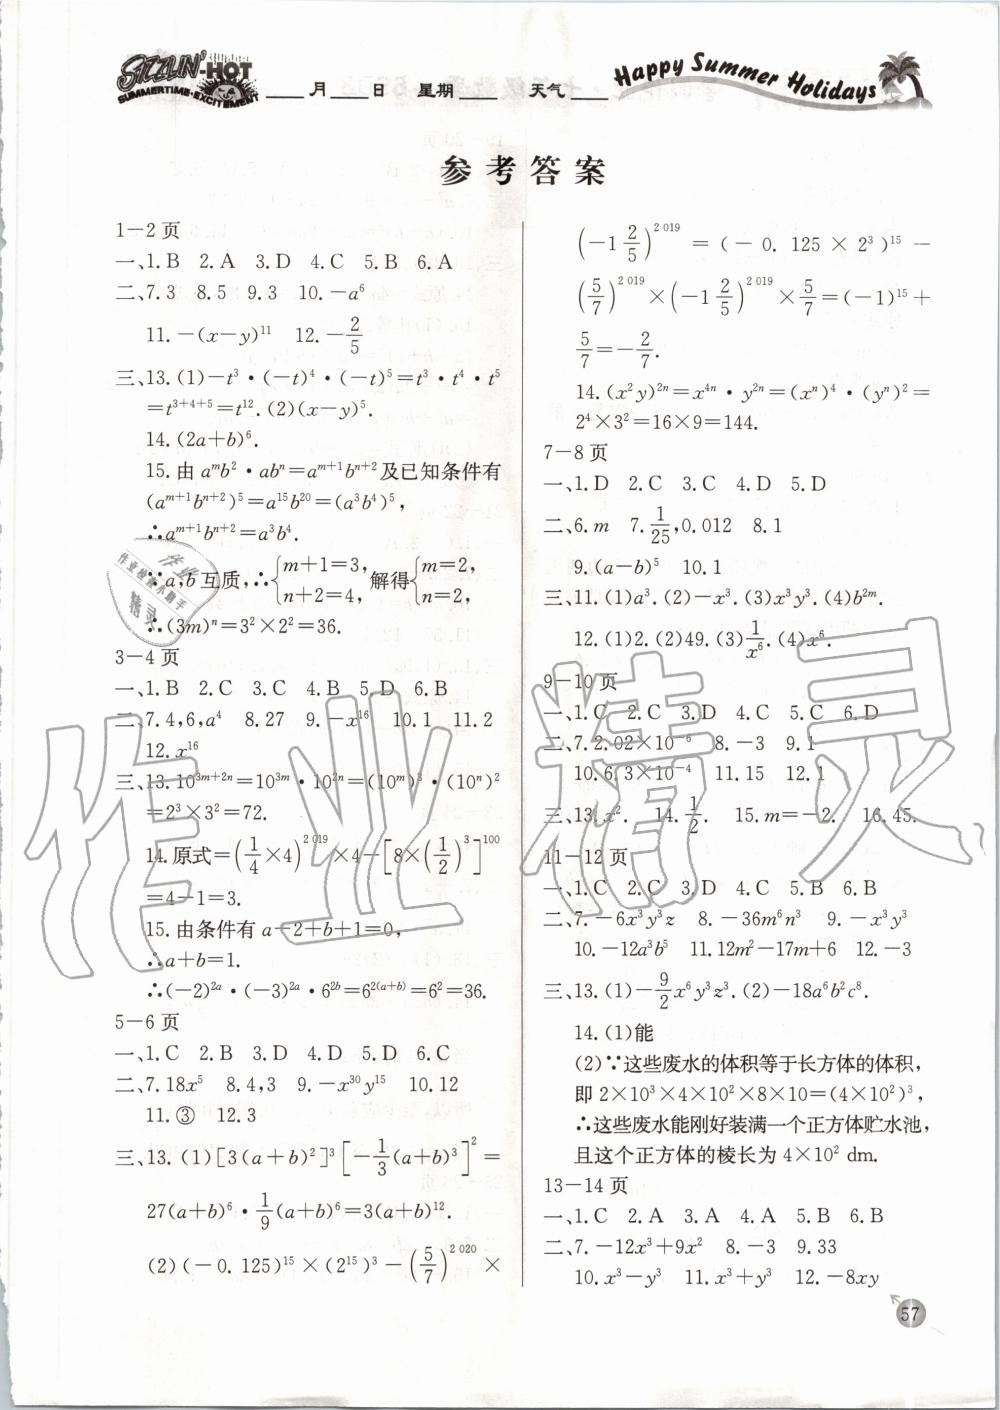 SIZZLIN'-HOT
SUMMERTIME·EXCITEMENT
____月____日 星期____ 天气____
Happy Summer Holidays
参考答案
1—2页
一、1.B 2.A 3.D 4.C 5.B 6.A
二、7.3 8.5 9.3 10.-a⁶
11.-(x-y)¹¹ 12.-2/5
三、13.(1)-t³·(-t)⁴·(-t)⁵=t³·t⁴·t⁵
=t³⁺⁴⁺⁵=t¹².(2)(x-y)⁵.
14.(2a+b)⁶.
15.由 aᵐb²·abⁿ=aᵐ⁺¹bⁿ⁺²及已知条件有
(aᵐ⁺¹bⁿ⁺²)⁵=a¹⁵b²⁰=(a³b⁴)⁵,
∴aᵐ⁺¹bⁿ⁺²=a³b⁴.
∵a,b互质,∴{m+1=3, n+2=4, 解得{m=2, n=2,
∴(3m)ⁿ=3²×2²=36.
3—4页
一、1.B 2.C 3.C 4.B 5.D 6.B
二、7.4,6,a⁴ 8.27 9.-x¹⁶ 10.1 11.2
12.x¹⁶
三、13.10³ᵐ⁺²ⁿ=10³ᵐ·10²ⁿ=(10ᵐ)³·(10ⁿ)²
=2³×3²=72.
14.原式=(1/4×4)²⁰¹⁹×4-[8×(1/2)³]¹⁰⁰
=4-1=3.
15.由条件有 a-2+b+1=0,
∴a+b=1.
∴(-2)²ᵃ·(-3)²ᵃ·6²ᵇ=6²⁽ᵃ⁺ᵇ⁾=6²=36.
5—6页
一、1.C 2.B 3.D 4.D 5.D 6.C
二、7.18x⁵ 8.4,3 9.-x³⁰y¹⁵ 10.12
11.③ 12.3
三、13.(1)[3(a+b)²]³[-1/3(a+b)³]²=
27(a+b)⁶·1/9(a+b)⁶=3(a+b)¹².
(2)(-0.125)¹⁵×(2¹⁵)³-(5/7)²⁰²⁰×
(-1 2/5)²⁰¹⁹=(-0.125×2³)¹⁵-
(5/7)²⁰¹⁹×(-1 2/5)²⁰¹⁹×5/7=(-1)¹⁵+
5/7=-2/7.
14.(x²y)²ⁿ=x⁴ⁿ·y²ⁿ=(xⁿ)⁴·(yⁿ)²=
2⁴×3²=16×9=144.
7—8页
一、1.D 2.C 3.C 4.D 5.D
二、6.m 7.1/25,0.012 8.1
9.(a-b)⁵ 10.1
三、11.(1)a³.(2)-x³.(3)x³y³.(4)b²ᵐ.
12.(1)2.(2)49.(3)1/x⁶.(4)x⁶.
9—10页
一、1.C 2.C 3.D 4.C 5.C 6.D
二、7.2.02×10⁻⁶ 8.-3 9.1
10.6.3×10⁻⁴ 11.15 12.1
三、13.x². 14.1/2. 15.m=-2. 16.45.
11—12页
一、1.C 2.C 3.D 4.C 5.B 6.B
二、7.-6x³y³z 8.-36m⁶n³ 9.-x³y³
10.-12a³b⁵ 11.12m²-17m+6 12.-3
三、13.(1)-9/2x⁶y³z³.(2)-18a⁶b²c⁸.
14.(1)能
(2)∵这些废水的体积等于长方体的体积,
即 2×10³×4×10²×8×10=(4×10²)³,
∴这些废水能刚好装满一个正方体贮水池,
且这个正方体的棱长为 4×10² dm.
13—14页
一、1.C 2.A 3.A 4.A 5.B 6.B
二、7.-12x³+9x² 8.-3 9.33
10.x³-y³ 11.x³+y³ 12.-8xy
57
作业精灵